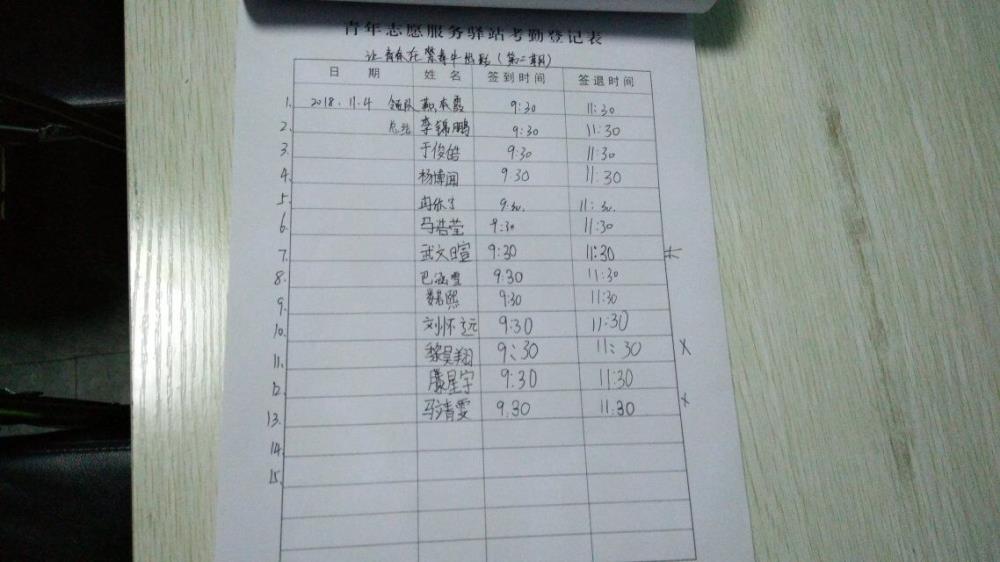 青年志愿服务驿站考勤登记表
让青春在 (第二期)
日 期 姓 名 签到时间 签退时间
1. 2018.11.4 领队 9:30 11:30
2. 李锦鹏 9:30 11:30
3. 于俊皓 9:30 11:30
4. 杨博闻 9:30 11:30
5. 9:30. 11:30.
6. 马浩莹 9:30 11:30
7. 武文暄 9:30 11:30
8. 巴涵雪 9:30 11:30
9. 魏熙 9:30 11:30
10. 刘怀远 9:30 11:30
11. 黎昊翔 9:30 11:30 X
12. 滕星宇 9:30 11:30
13. 马清雯 9:30 11:30 x
14.
15.